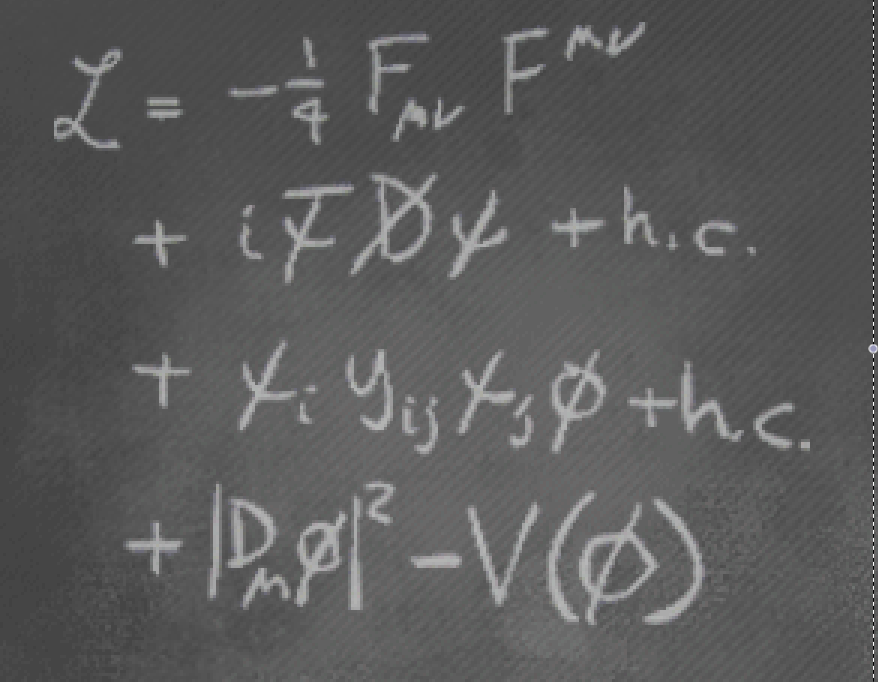 ℒ = -¼ F_μν F^μν
+ i ψ̄ D̸ ψ + h.c.
+ ψ_i y_ij ψ_j φ + h.c.
+ |D_μ φ|² - V(φ)